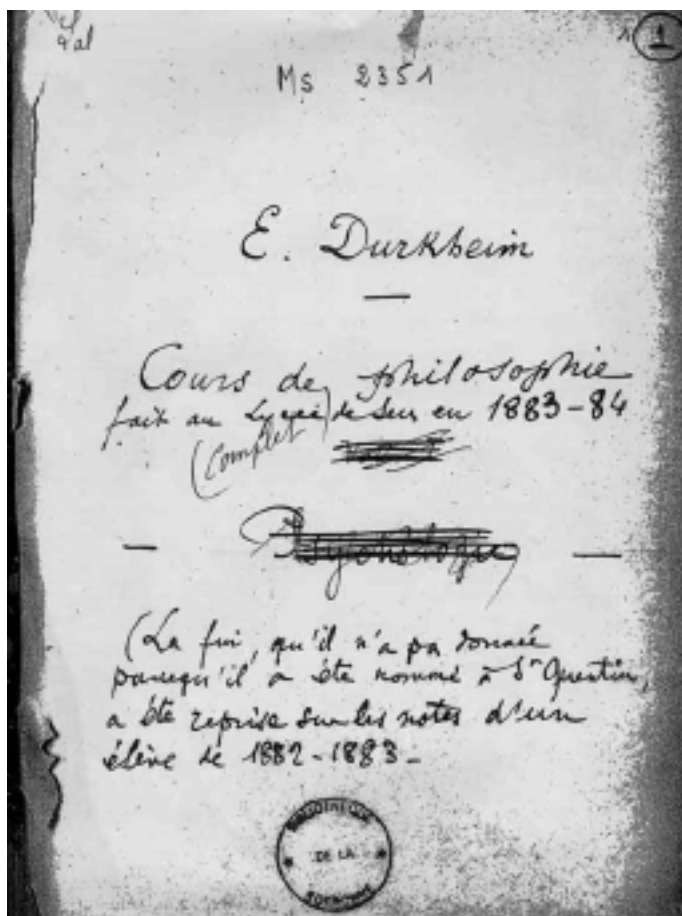 1 1
Ms 2351
E. Durkheim
Cours de philosophie
fait au Lycée de Sens en 1883-84
(Complet)
Psychologie
(La fin, qu'il n'a pas donnée
parcequ'il a été nommé à St Quentin,
a été reprise sur les notes d'un
élève de 1882-1883-
BIBLIOTHEQUE
DE LA
SORBONNE